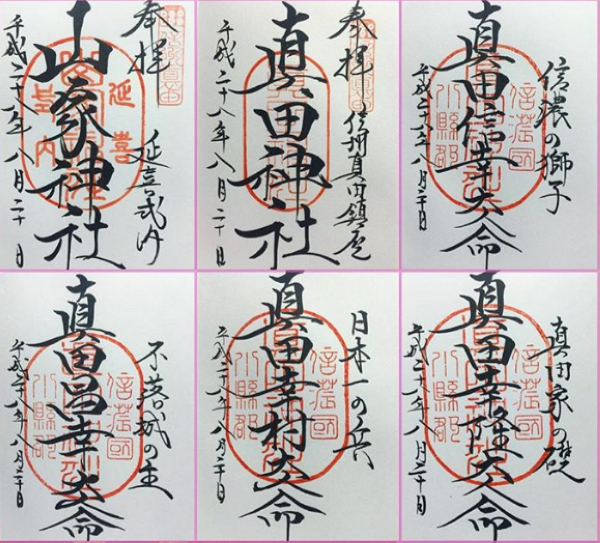 奉拝
延喜式内
延喜
山家神社
式内
平成二十八年八月二十日
奉拝
信州真田鎮座
真田神社
平成二十八年八月二十日
信濃の獅子
信濃國
真田信幸大命
小縣郡
平成二十八年八月二十日
不落城の主
信濃國
真田昌幸大命
小縣郡
平成二十八年八月二十日
日本一の兵
信濃國
真田幸村大命
小縣郡
平成二十八年八月二十日
真田家の礎
信濃國
真田幸隆大命
小縣郡
平成二十八年八月二十日